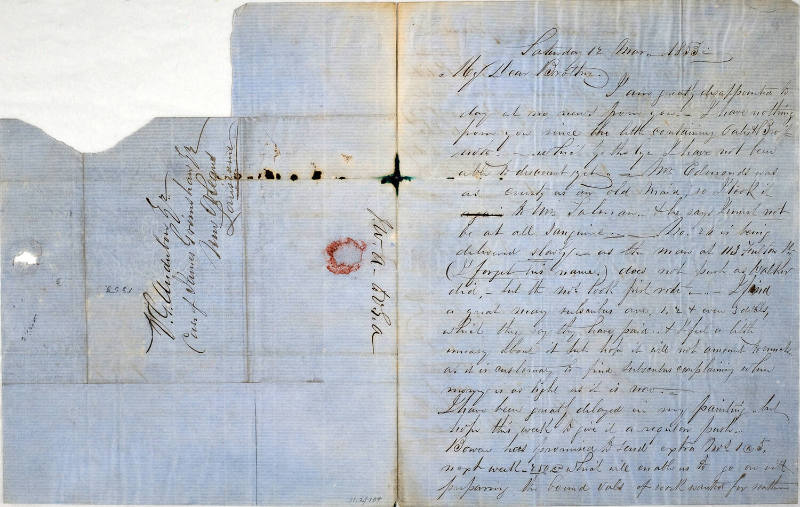 Saturday 12 Mar. 1853
My Dear Brother
I am greatly disappointed to
day at no news from you. I have nothing
from you since the letter containing
note which by the bye I have not been
able to discount yet. Mr. Edmonds was
as as an old maid, so I took it
to Mr. & he says I must not
be at all sanguine. No. 24 is being
delivered slowly as the man at 113 Fulton St
(I forget his name.) does not push as Walker
did, but the not look first rate. I find
a great many subscribers owe, 1, 2 & even 3 dolls,
which they say they have paid. & I feel a little
uneasy about it but hope it will not amount to much
as it is customary to find subscribers complaining when
money is as tight as it is now.
I have been greatly delayed in my printing but
hope this week to give it a regular push.
Bowen has promised to send extra No 1 & 5,
next week 250 which will enable us to go on with
preparing the bound vols of work wanted for
V. G. Audubon Esq
Care of James Grimshaw Esq
New Orleans
Louisiana
J. W. A.
11.28.104